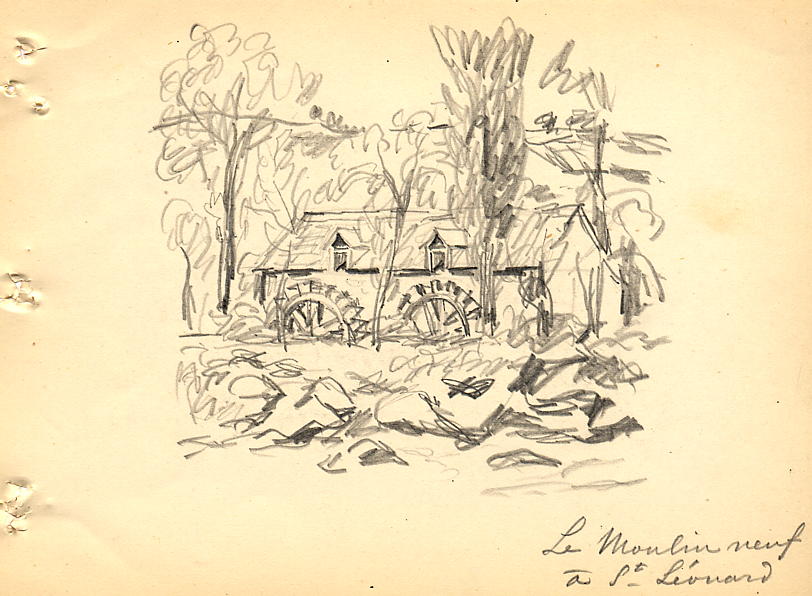 Le Moulin neuf
à St Léonard